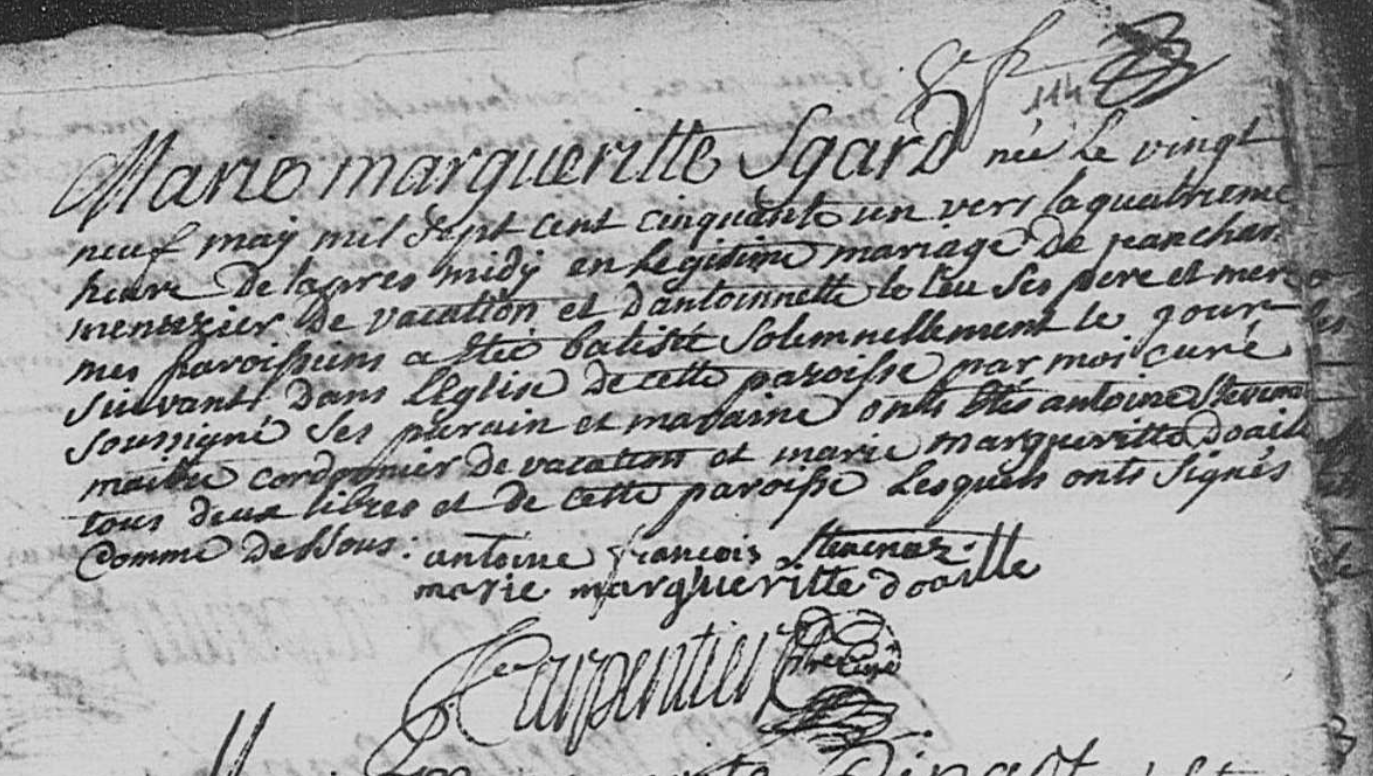 114
Marie margueritte Sgard née le vingt
neuf may mil sept cent cinquante un vers la quatrieme
heure de lapres midy en legitime mariage de jean char
menuzier de vacation et dantoinnette le leu ses pere et mere
mes paroissiens a etté batisée solemnellement le jour
suivant dans l'Eglise de cette paroisse par moi curé
soussigné ses parain et maraine onts étés antoine
maitre cordonnier de vacation et marie margueritte doaille
tous deux libres et de cette paroisse lesquels onts signés
comme dessous. antoine francois
marie margueritte doaille
Carpentier